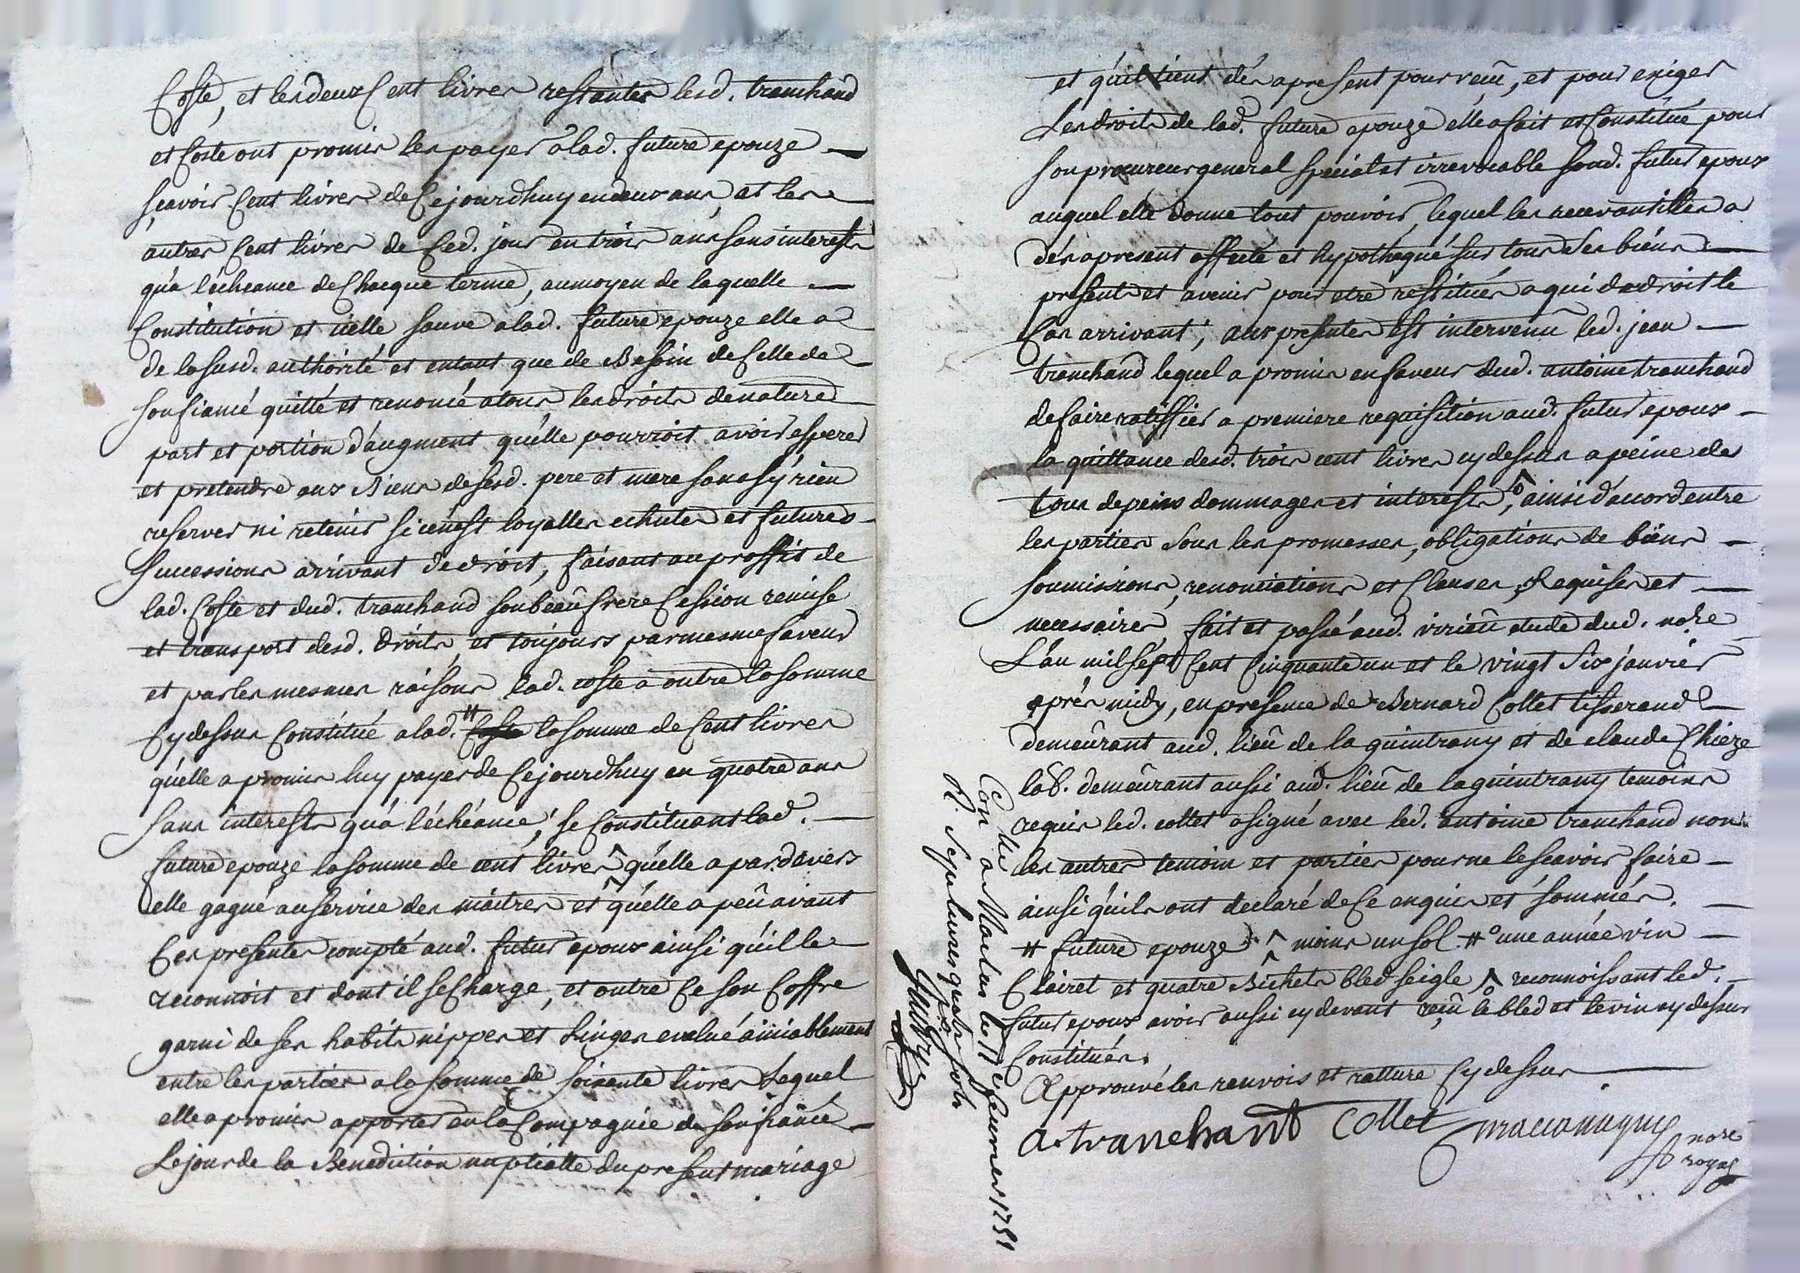 Coste, et les deux Cent livres restantes lesd. tranchand
et Coste ont promis les payer a lad. future epouze
scavoir Cent livres de Cejourdhuy en deux ans, et les
autres Cent livres de Ced. jour en trois ans sans interests
qu'a l'echeance de Chacque terme, au moyen de laquelle
Constitution et icelle sauve a lad. future epouze elle a
de la susd. authorité et entant que de Besoin de Celle de
son fiancé quitté et renoncé a tous les droits de nature
part et portion d'augment qu'elle pourroit avoir esperer
et pretendre aux Biens de sesd. pere et mere sans s'y rien
reserver ni retenir si ce n'est loyalles echutes et futures
successions arrivant de droit, faisant au proffit de
lad. Coste et dud. tranchand son beau frere Cession remise
et transport desd. droits et toujours par mesme faveur
et par les mesmes raisons lad. coste a outre la somme
Cy dessus Constitué a lad. # Coste la somme de Cent livres
qu'elle a promis luy payer de Cejourdhuy en quatre ans
sans interests qu'a l'échéance; se Constituant lad.
future epouze la somme de cent livres ^ qu'elle a pardevers
elle gagné au service des maitres et qu'elle a peû avant
Ces presentes compté aud. futur epoux ainsi qu'il le
reconnoit et dont il se Charge, et outre Ce son Coffre
garni de ses habits nippes et Linges evalué amiablement
entre les parties a la somme de soixente livres Lequel
elle a promis apporter en la Compagnie de son fiancé
Le jour de la Benediction nuptialle du present mariage
et qu'il tient dés apresent pour receû, et pour exiger
Les droits de lad. future epouze elle a fait et Constitué pour
son procureur general special et irrevocable sond. futur epoux
auquel elle donne tout pouvoir, lequel les recevant illes a
dés apresent affecté et hypothequé sur tous ses biéns
presents et avenir pour etre restitués a qui de droit le
Cas arrivant; aux presentes est intervenû led. jean
tranchand lequel a promis en faveur dud. antoine tranchand
de faire ratiffier a premiere requisition aud. futur epoux
la quittance desd. trois cent livres cy dessus a peine de
tous depens dommages et interests, ainsi d'accord entre
les parties sous les promesses, obligations de biéns
soumissions, renonciations et Clauses, Requises et
necessaires, fait et passé aud. virieû etude dud. nore
L'an mil sept Cent Cinquante un et le vingt six janvier
aprés midy, en presence de Bernard Collet tisserand
demeûrant aud. lieû de la guintrany et de claude Chieze
lab. demeûrant aussi aud. lieû de laguintrany temoins
requis led. collet a signé avec led. antoine tranchand non
les autres temoin et parties pour ne le scavoir faire
ainsi qu'ils ont declaré de Ce enquis et sommés.
# future epouze ^ moins un sol # une année vin
Clairet et quatre Bichets bled seigle ^ reconnoissant led.
futur epoux avoir aussi cy devant receû le bled et le vin cy dessus
Constitués.
Approuvé les renvois et ratture Cy dessus
A tranchant Collet
nore
royal
Con lle a le 11e feurier 1751
R Sept livres quatre sols